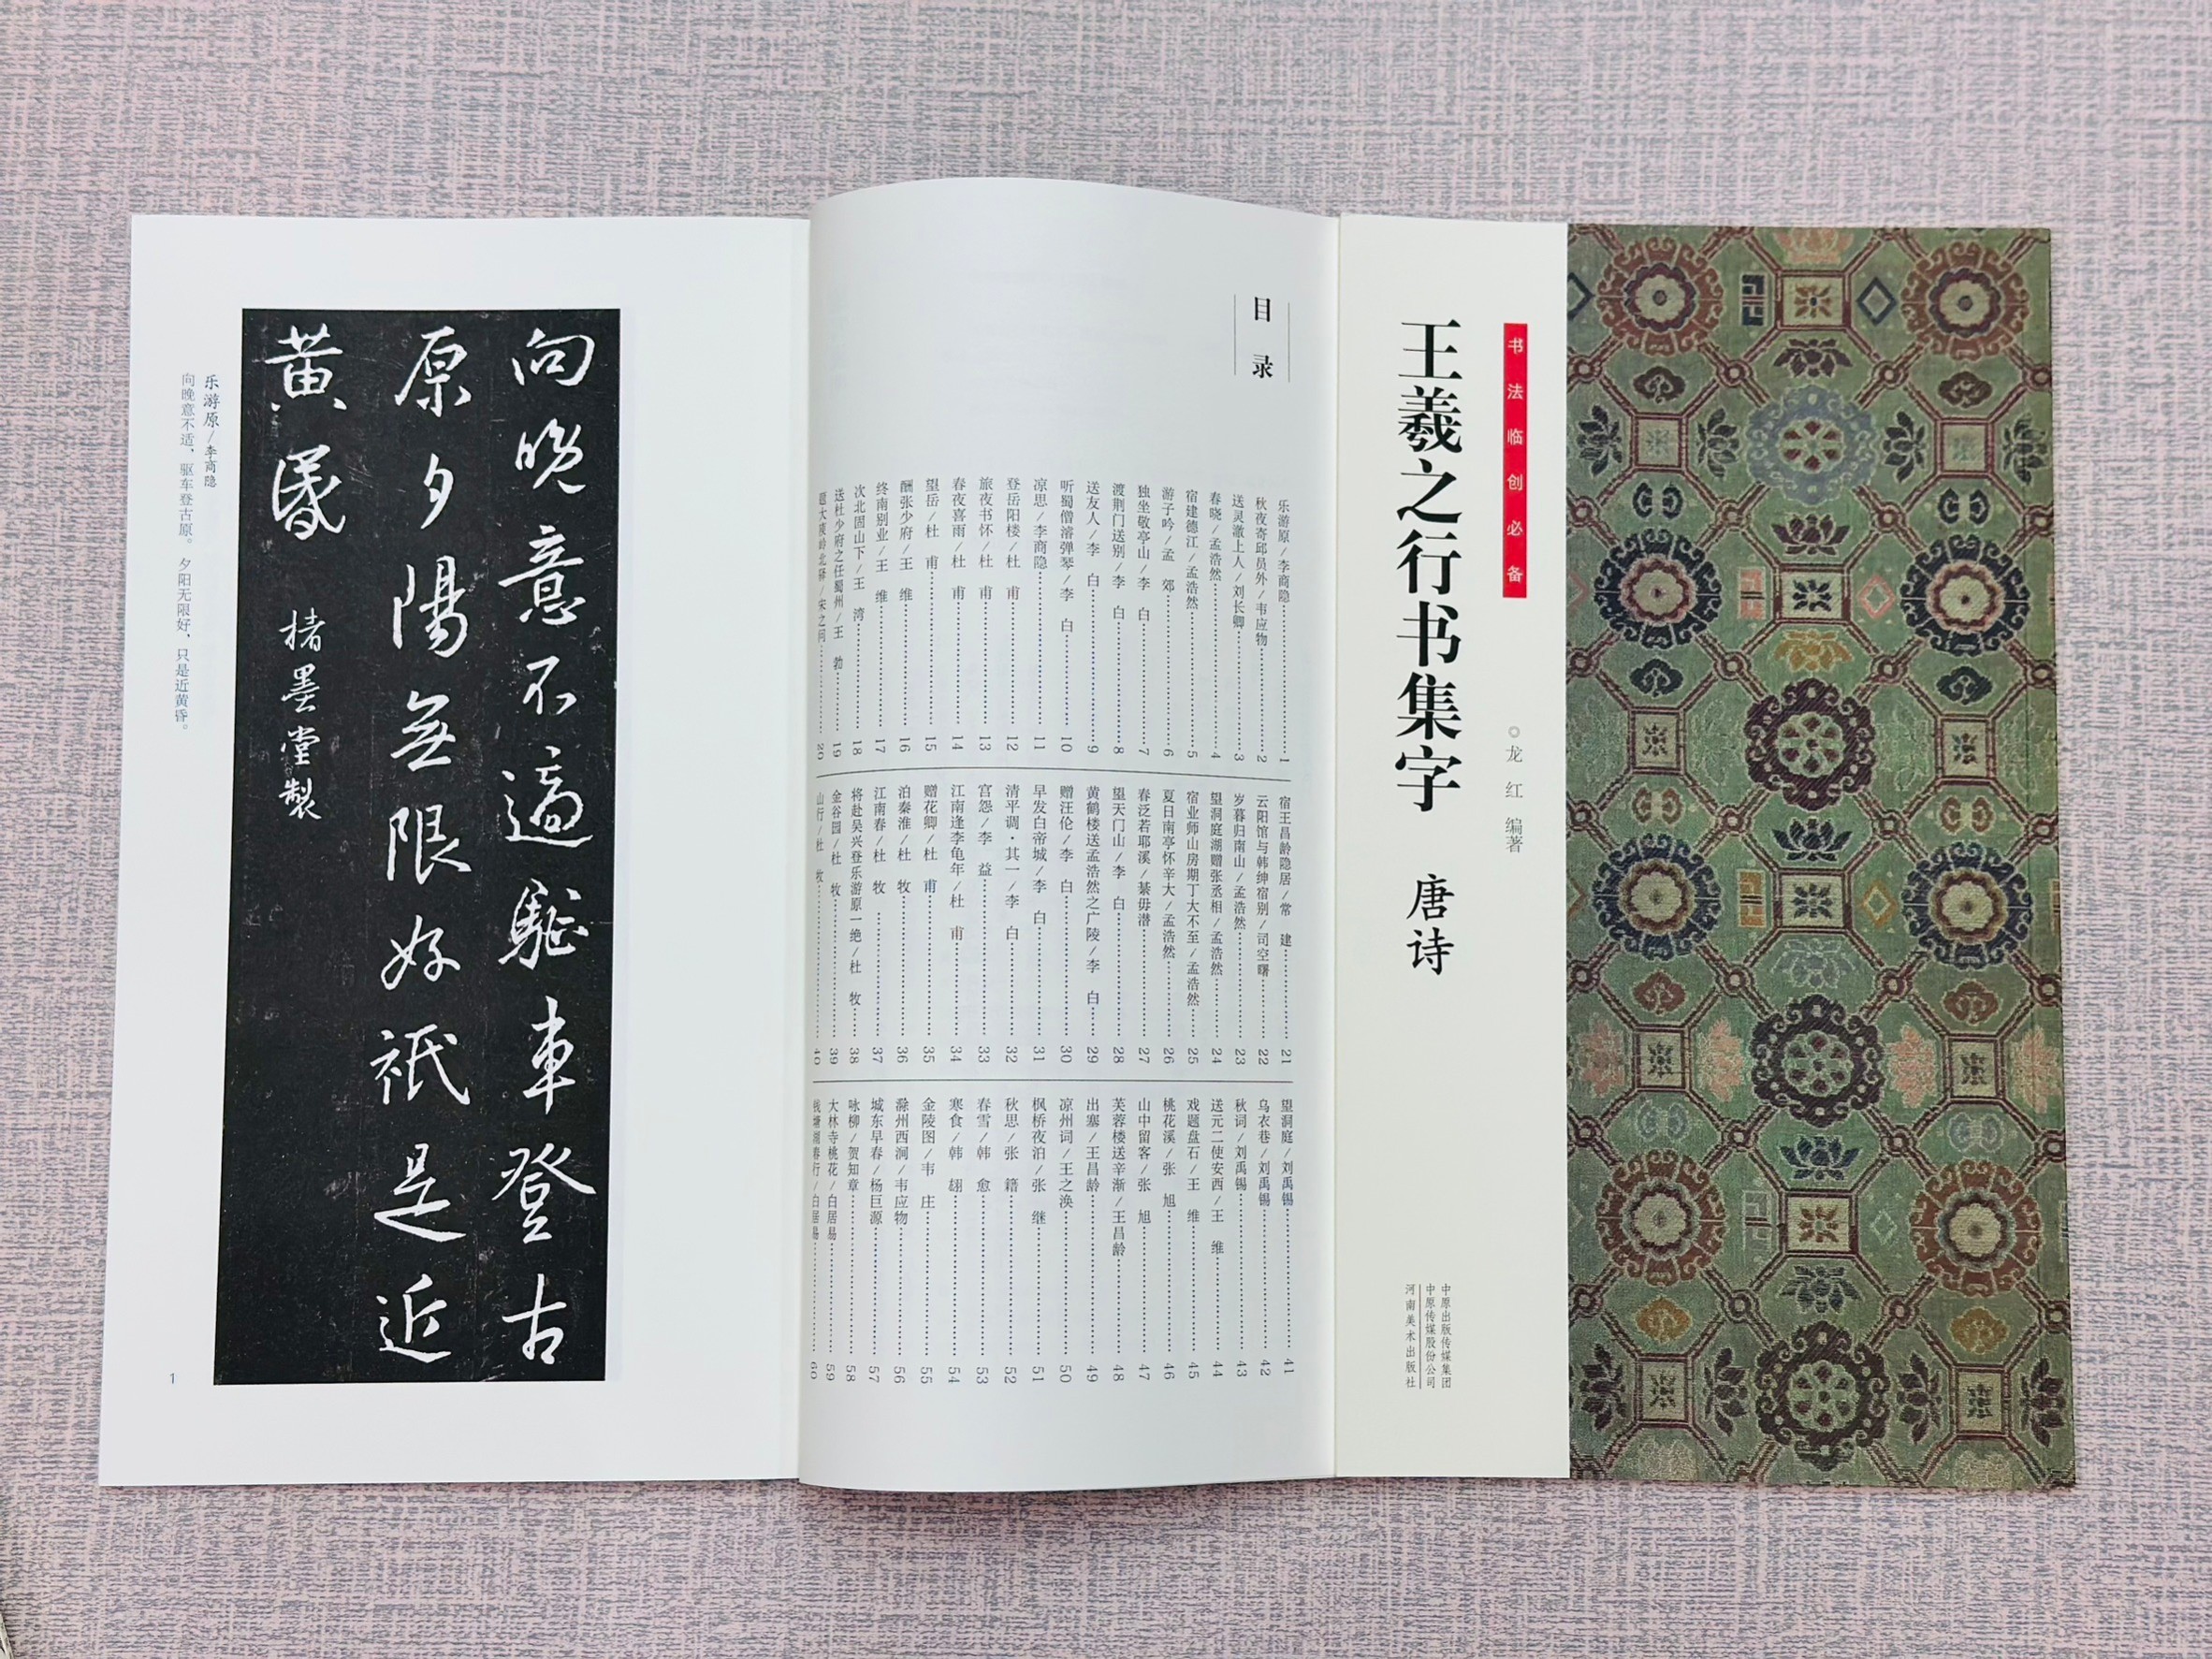 书法临创必备
王羲之行书集字 唐诗
◎龙红 编著
中原出版传媒集团
中原传媒股份公司
河南美术出版社
目录
乐游原/李商隐……1
秋夜寄邱员外/韦应物……2
送灵澈上人/刘长卿……3
春晓/孟浩然……4
宿建德江/孟浩然……5
游子吟/孟 郊……6
独坐敬亭山/李 白……7
渡荆门送别/李 白……8
送友人/李 白……9
听蜀僧濬弹琴/李 白……10
凉思/李商隐……11
登岳阳楼/杜 甫……12
旅夜书怀/杜 甫……13
春夜喜雨/杜 甫……14
望岳/杜 甫……15
酬张少府/王 维……16
终南别业/王 维……17
次北固山下/王 湾……18
送杜少府之任蜀州/王 勃……19
题大庾岭北驿/宋之问……20
宿王昌龄隐居/常 建……21
云阳馆与韩绅宿别/司空曙……22
岁暮归南山/孟浩然……23
望洞庭湖赠张丞相/孟浩然……24
宿业师山房期丁大不至/孟浩然……25
夏日南亭怀辛大/孟浩然……26
春泛若耶溪/綦毋潜……27
望天门山/李 白……28
黄鹤楼送孟浩然之广陵/李 白……29
赠汪伦/李 白……30
早发白帝城/李 白……31
清平调·其一/李 白……32
宫怨/李 益……33
江南逢李龟年/杜 甫……34
赠花卿/杜 甫……35
泊秦淮/杜 牧……36
江南春/杜 牧……37
将赴吴兴登乐游原一绝/杜 牧……38
金谷园/杜 牧……39
山行/杜 牧……40
望洞庭/刘禹锡……41
乌衣巷/刘禹锡……42
秋词/刘禹锡……43
送元二使安西/王 维……44
戏题盘石/王 维……45
桃花溪/张 旭……46
山中留客/张 旭……47
芙蓉楼送辛渐/王昌龄……48
出塞/王昌龄……49
凉州词/王之涣……50
枫桥夜泊/张 继……51
秋思/张 籍……52
春雪/韩 愈……53
寒食/韩 翃……54
金陵图/韦 庄……55
滁州西涧/韦应物……56
城东早春/杨巨源……57
咏柳/贺知章……58
大林寺桃花/白居易……59
钱塘湖春行/白居易……60
向晚意不適駈車登古
原夕陽無限好祇是近
黄昏 楮墨堂製
乐游原/李商隐
向晚意不适，驱车登古原。夕阳无限好，只是近黄昏。
1